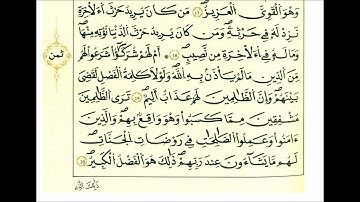 وَهُوَ اَ۬لْقَوِيُّ اُ۬لْعَزِيزُ مَن كَانَ يُرِيدُ حَرْثَ اَ۬لَاخِرَةِ
نَزِدْ لَهُۥ فِے حَرْثِهِۦ وَمَن كَانَ يُرِيدُ حَرْثَ اَ۬لدُّنْيَا نُوتِهِۦ مِنْهَا
وَمَا لَهُۥ فِے اِ۬لَاخِرَةِ مِن نَّصِيبٍ اَمْ لَهُمْ شُرَكَٰٓؤُاْ شَرَعُواْ لَهُم
مِّنَ اَ۬لدِّينِ مَا لَمْ يَاذَنۢ بِهِ اِ۬للَّهُ وَلَوْلَا كَلِمَةُ اُ۬لْفَصْلِ لَقُضِيَ
بَيْنَهُمْ وَإِنَّ اَ۬لظَّٰلِمِينَ لَهُمْ عَذَابٌ اَلِيمٌ تَرَي اَ۬لظَّٰلِمِينَ
مُشْفِقِينَ مِمَّا كَسَبُواْ وَهُوَ وَاقِعٌۢ بِهِمْ وَالذِينَ
ءَامَنُواْ وَعَمِلُواْ اُ۬لصَّٰلِحَٰتِ فِے رَوْضَاتِ اِ۬لْجَنَّاتِ
لَهُم مَّا يَشَآءُونَ عِندَ رَبِّهِمْ ذَٰلِكَ هُوَ اَ۬لْفَضْلُ اُ۬لْكَبِيرُ
ثمن